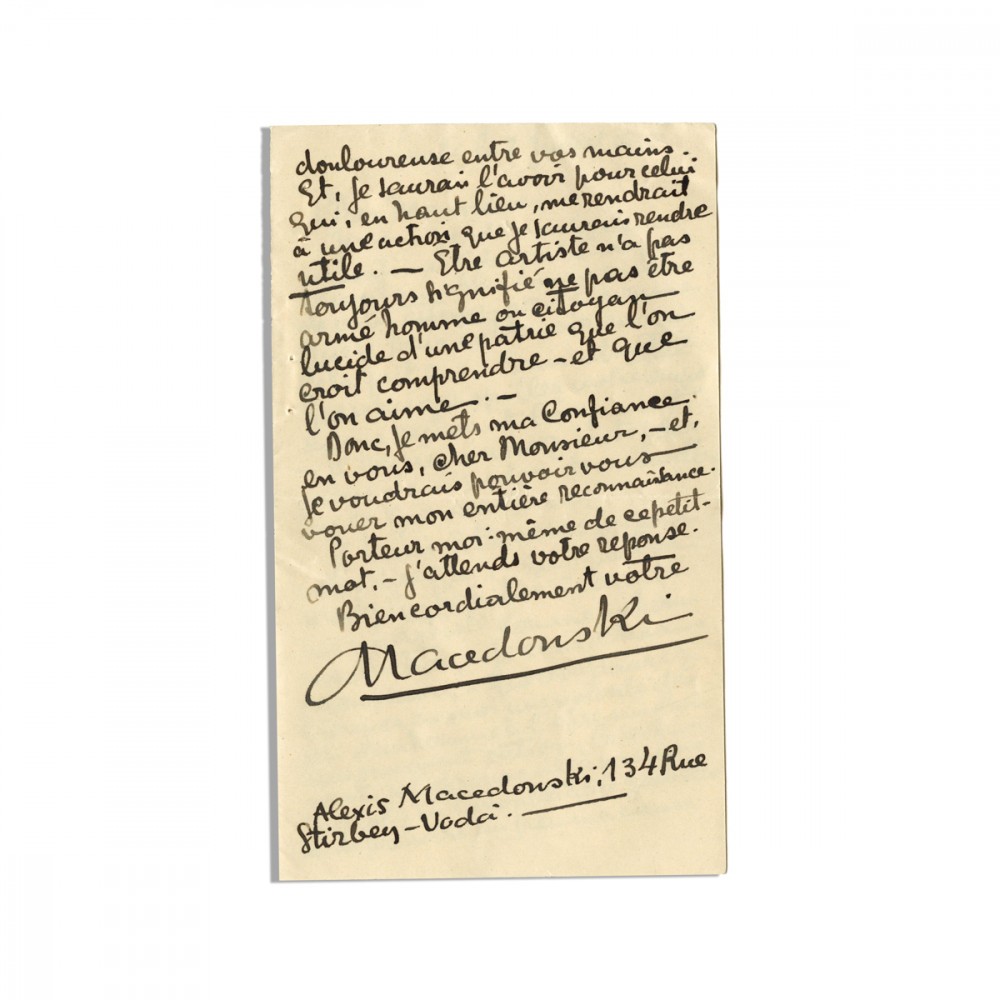 douloureuse entre vos mains.
Et, je saurai l'avoir pour celui
qui, en haut lieu, me rendrait
à une action que je saurais rendre
utile. — Etre artiste n'a pas
toujours signifié ne pas être
armé homme ou citoyen
lucide d'une patrie que l'on
croit comprendre — et que
l'on aime. —
Donc, je mets ma Confiance
en vous, cher Monsieur, — et,
je voudrais pouvoir vous
vouer mon entière reconnaissance.
Porteur moi-même de ce petit-
mot, — j'attends votre réponse.
Bien cordialement votre
Macedonski
Alexis Macedonski, 134 Rue
Stirbey-Voda. —